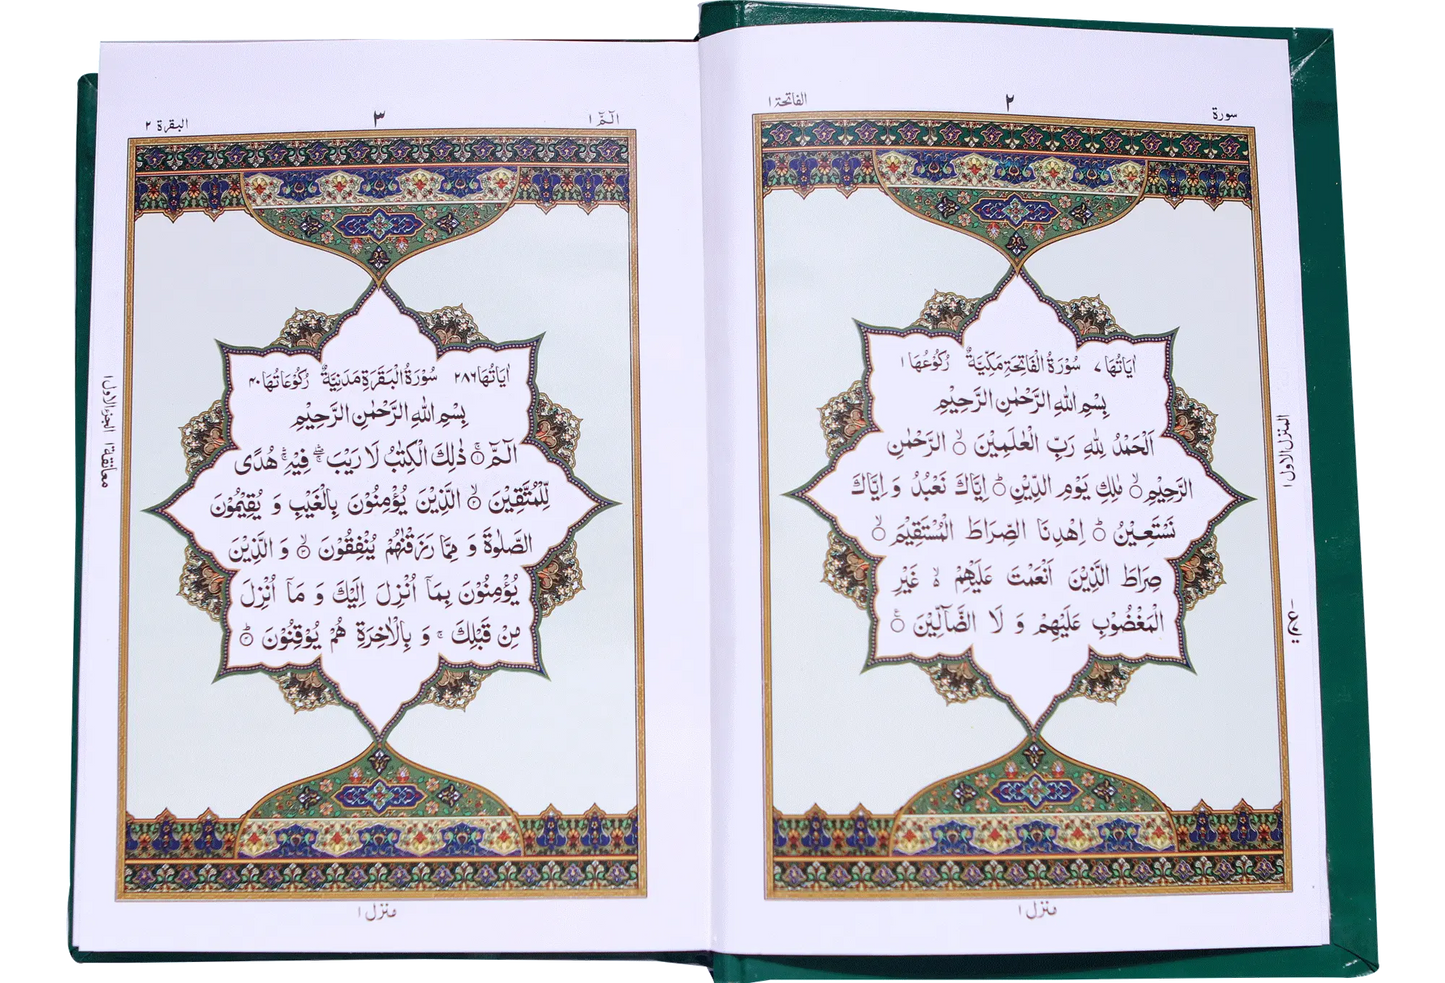 سورة
٢
الفاتحة ١
اٰيَاتُهَا ٧ سُوْرَةُ الْفَاتِحَةِ مَكِّيَّةٌ رُكُوْعُهَا ١
بِسْمِ اللّٰهِ الرَّحْمٰنِ الرَّحِيْمِ
اَلْحَمْدُ لِلّٰهِ رَبِّ الْعٰلَمِيْنَ ۙ الرَّحْمٰنِ
الرَّحِيْمِ ۙ مٰلِكِ يَوْمِ الدِّيْنِ ؕ اِيَّاكَ نَعْبُدُ وَ اِيَّاكَ
نَسْتَعِيْنُ ؕ اِهْدِنَا الصِّرَاطَ الْمُسْتَقِيْمَ ۙ
صِرَاطَ الَّذِيْنَ اَنْعَمْتَ عَلَيْهِمْ ۙ غَيْرِ
الْمَغْضُوْبِ عَلَيْهِمْ وَ لَا الضَّآلِّيْنَ
المنزل الاول ١
منزل ١
الٓمّٓ ١
٣
البقرة ٢
اٰيَاتُهَا ٢٨٦ سُوْرَةُ الْبَقَرَةِ مَدَنِيَّةٌ رُكُوْعَاتُهَا ٤٠
بِسْمِ اللّٰهِ الرَّحْمٰنِ الرَّحِيْمِ
الٓمّٓ ۚ ذٰلِكَ الْكِتٰبُ لَا رَيْبَ ۛۚ فِيْهِ ۛۚ هُدًى
لِّلْمُتَّقِيْنَ ۙ الَّذِيْنَ يُؤْمِنُوْنَ بِالْغَيْبِ وَ يُقِيْمُوْنَ
الصَّلٰوةَ وَ مِمَّا رَزَقْنٰهُمْ يُنْفِقُوْنَ ۙ وَ الَّذِيْنَ
يُؤْمِنُوْنَ بِمَاۤ اُنْزِلَ اِلَيْكَ وَ مَاۤ اُنْزِلَ
مِنْ قَبْلِكَ ۚ وَ بِالْاٰخِرَةِ هُمْ يُوْقِنُوْنَ ؕ
معانقة ١ الجزء الاول ١
منزل ١